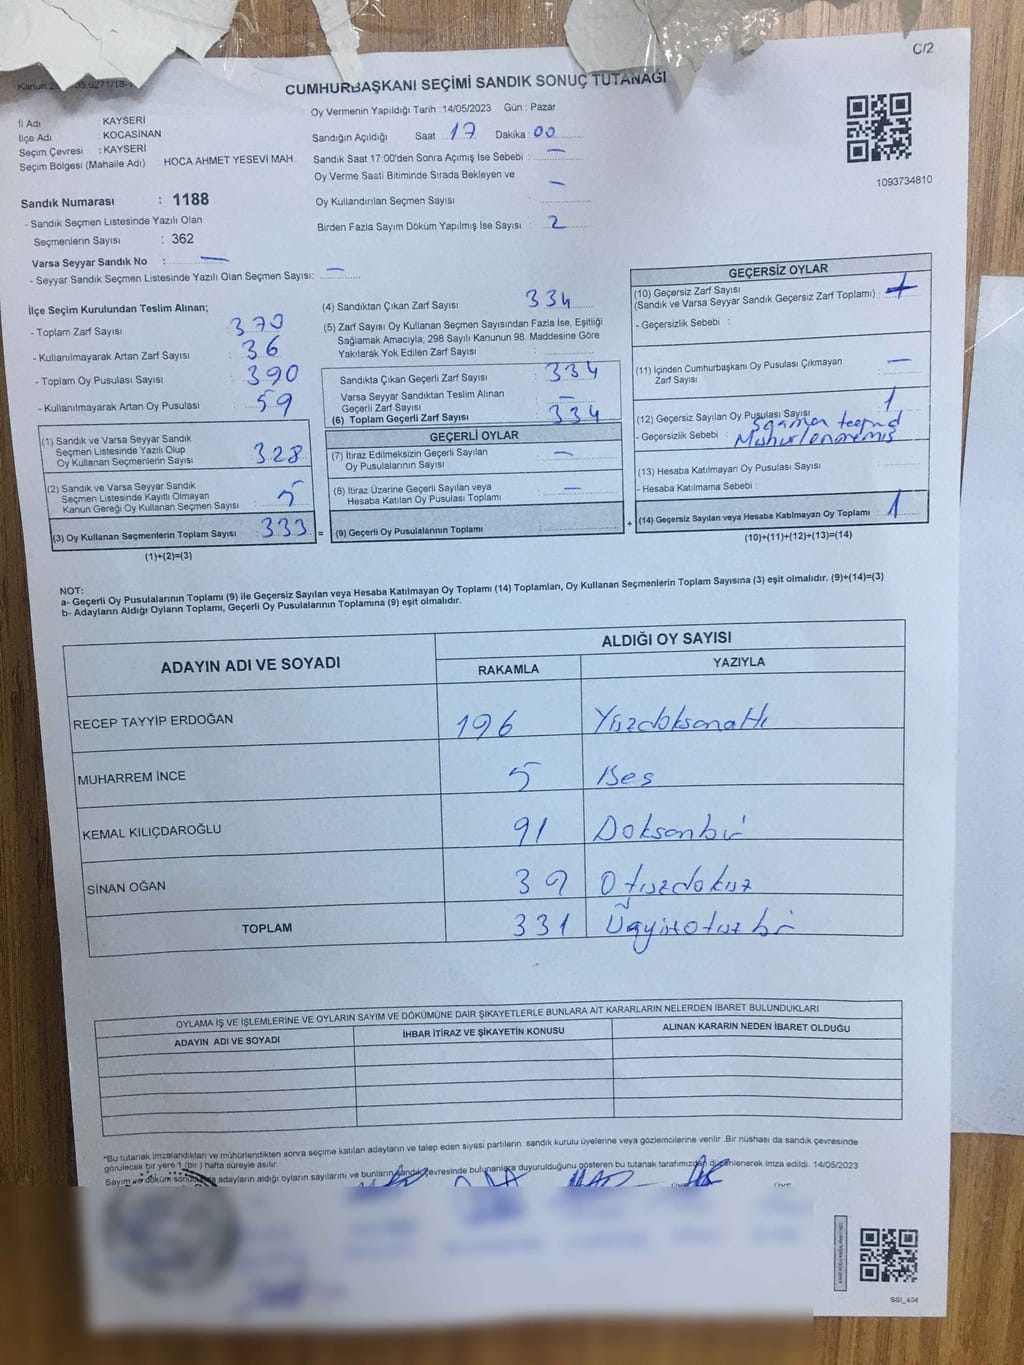 C/2
CUMHURBAŞKANI SEÇİMİ SANDIK SONUÇ TUTANAĞI
İl Adı : KAYSERİ
İlçe Adı : KOCASİNAN
Seçim Çevresi : KAYSERİ
Seçim Bölgesi (Mahalle Adı) : HOCA AHMET YESEVİ MAH.
Sandık Numarası : 1188
- Sandık Seçmen Listesinde Yazılı Olan
Seçmenlerin Sayısı : 362
Varsa Seyyar Sandık No : —
- Seyyar Sandık Seçmen Listesinde Yazılı Olan Seçmen Sayısı: —
Oy Vermenin Yapıldığı Tarih : 14/05/2023 Gün : Pazar
Sandığın Açıldığı Saat 17 Dakika : 00
Sandık Saat 17:00'den Sonra Açımış İse Sebebi : —
Oy Verme Saati Bitiminde Sırada Bekleyen ve
Oy Kullandırılan Seçmen Sayısı : —
Birden Fazla Sayım Döküm Yapılmış İse Sayısı : 2
1093734810
İlçe Seçim Kurulundan Teslim Alınan;
- Toplam Zarf Sayısı : 370
- Kullanılmayarak Artan Zarf Sayısı : 36
- Toplam Oy Pusulası Sayısı : 390
- Kullanılmayarak Artan Oy Pusulası : 59
(1) Sandık ve Varsa Seyyar Sandık
Seçmen Listesinde Yazılı Olup
Oy Kullanan Seçmenlerin Sayısı : 328
(2) Sandık ve Varsa Seyyar Sandık
Seçmen Listesinde Kayıtlı Olmayan
Kanun Gereği Oy Kullanan Seçmen Sayısı : 5
(3) Oy Kullanan Seçmenlerin Toplam Sayısı : 333 =
(1)+(2)=(3)
(4) Sandıktan Çıkan Zarf Sayısı : 334
(5) Zarf Sayısı Oy Kullanan Seçmen Sayısından Fazla İse, Eşitliği
Sağlamak Amacıyla, 298 Sayılı Kanunun 98. Maddesine Göre
Yakılarak Yok Edilen Zarf Sayısı :
Sandıkta Çıkan Geçerli Zarf Sayısı : 334
Varsa Seyyar Sandıktan Teslim Alınan
Geçerli Zarf Sayısı : —
(6) Toplam Geçerli Zarf Sayısı : 334
GEÇERLİ OYLAR
(7) İtiraz Edilmeksizin Geçerli Sayılan
Oy Pusulalarının Sayısı : —
(8) İtiraz Üzerine Geçerli Sayılan veya
Hesaba Katılan Oy Pusulası Toplamı : —
(9) Geçerli Oy Pusulalarının Toplamı : +
GEÇERSİZ OYLAR
(10) Geçersiz Zarf Sayısı
(Sandık ve Varsa Seyyar Sandık Geçersiz Zarf Toplamı) :
- Geçersizlik Sebebi :
(11) İçinden Cumhurbaşkanı Oy Pusulası Çıkmayan
Zarf Sayısı : —
(12) Geçersiz Sayılan Oy Pusulası Sayısı : 1
- Geçersizlik Sebebi : Mühürlenmemiş
(13) Hesaba Katılmayan Oy Pusulası Sayısı :
- Hesaba Katılmama Sebebi :
(14) Geçersiz Sayılan veya Hesaba Katılmayan Oy Toplamı : 1
(10)+(11)+(12)+(13)=(14)
NOT:
a- Geçerli Oy Pusulalarının Toplamı (9) ile Geçersiz Sayılan veya Hesaba Katılmayan Oy Toplamı (14) Toplamları, Oy Kullanan Seçmenlerin Toplam Sayısına (3) eşit olmalıdır. (9)+(14)=(3)
b- Adayların Aldığı Oyların Toplamı, Geçerli Oy Pusulalarının Toplamına (9) eşit olmalıdır.
ADAYIN ADI VE SOYADI
ALDIĞI OY SAYISI
RAKAMLA YAZIYLA
RECEP TAYYİP ERDOĞAN 196 Yüzdoksanaltı
MUHARREM İNCE 5 Beş
KEMAL KILIÇDAROĞLU 91 Doksanbir
SİNAN OĞAN 39 Otuzdokuz
TOPLAM 331 Üçyüzotuzbir
OYLAMA İŞ VE İŞLEMLERİNE VE OYLARIN SAYIM VE DÖKÜMÜNE DAİR ŞİKAYETLERLE BUNLARA AİT KARARLARIN NELERDEN İBARET BULUNDUKLARI
ADAYIN ADI VE SOYADI
İHBAR İTİRAZ VE ŞİKAYETİN KONUSU
ALINAN KARARIN NEDEN İBARET OLDUĞU
*Bu tutanak imzalandıktan ve mühürlendikten sonra seçime katılan adayların ve talep eden siyasi partilerin sandık kurulu üyelerine veya gözlemcilerine verilir. Bir nüshası da sandık çevresinde
görülecek bir yere 1 (bir) hafta süreyle asılır.
Sayım ve döküm adayların aldığı oyların sayılarını ve bunların sandık çevresinde bulunanlara duyurulduğunu gösteren bu tutanak tarafımızdan düzenlenerek imza edildi. 14/05/2023
SSI_404